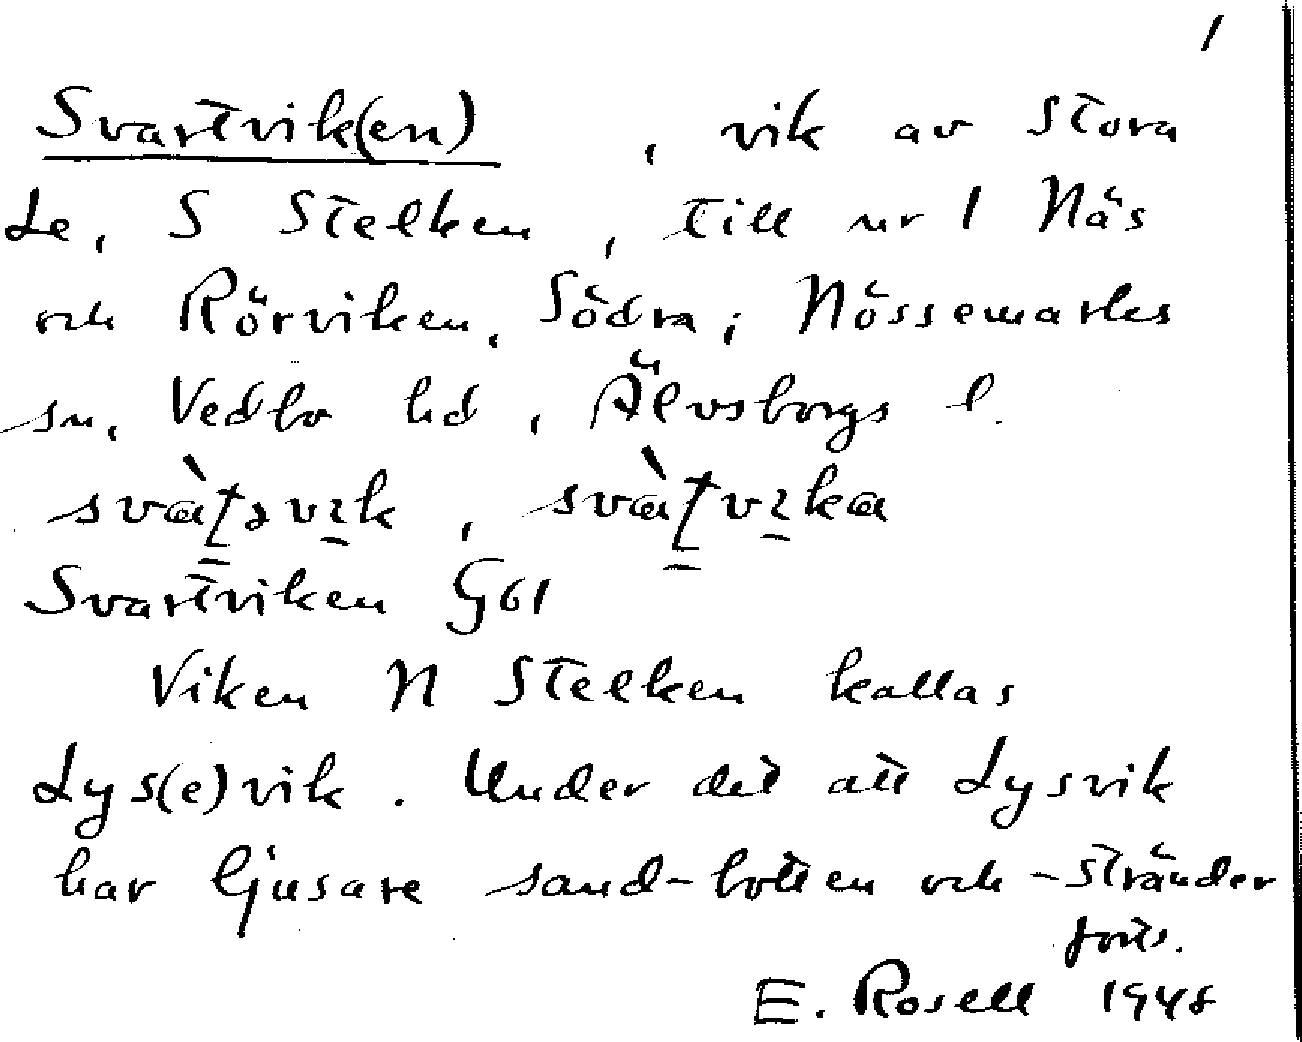 1
Svartvik(en) , vik av Stora
Le, S Stelken, till nr 1 Näs
och Rörviken, Södra; Nössemarks
sn, Vedbo hd, Älvsborgs l.
Svartviken G61
Viken N Stelken kallas
Lys(e)vik. Under det att Lysvik
har ljusare sand-botten och -stränder
forts.
E. Rosell 1948